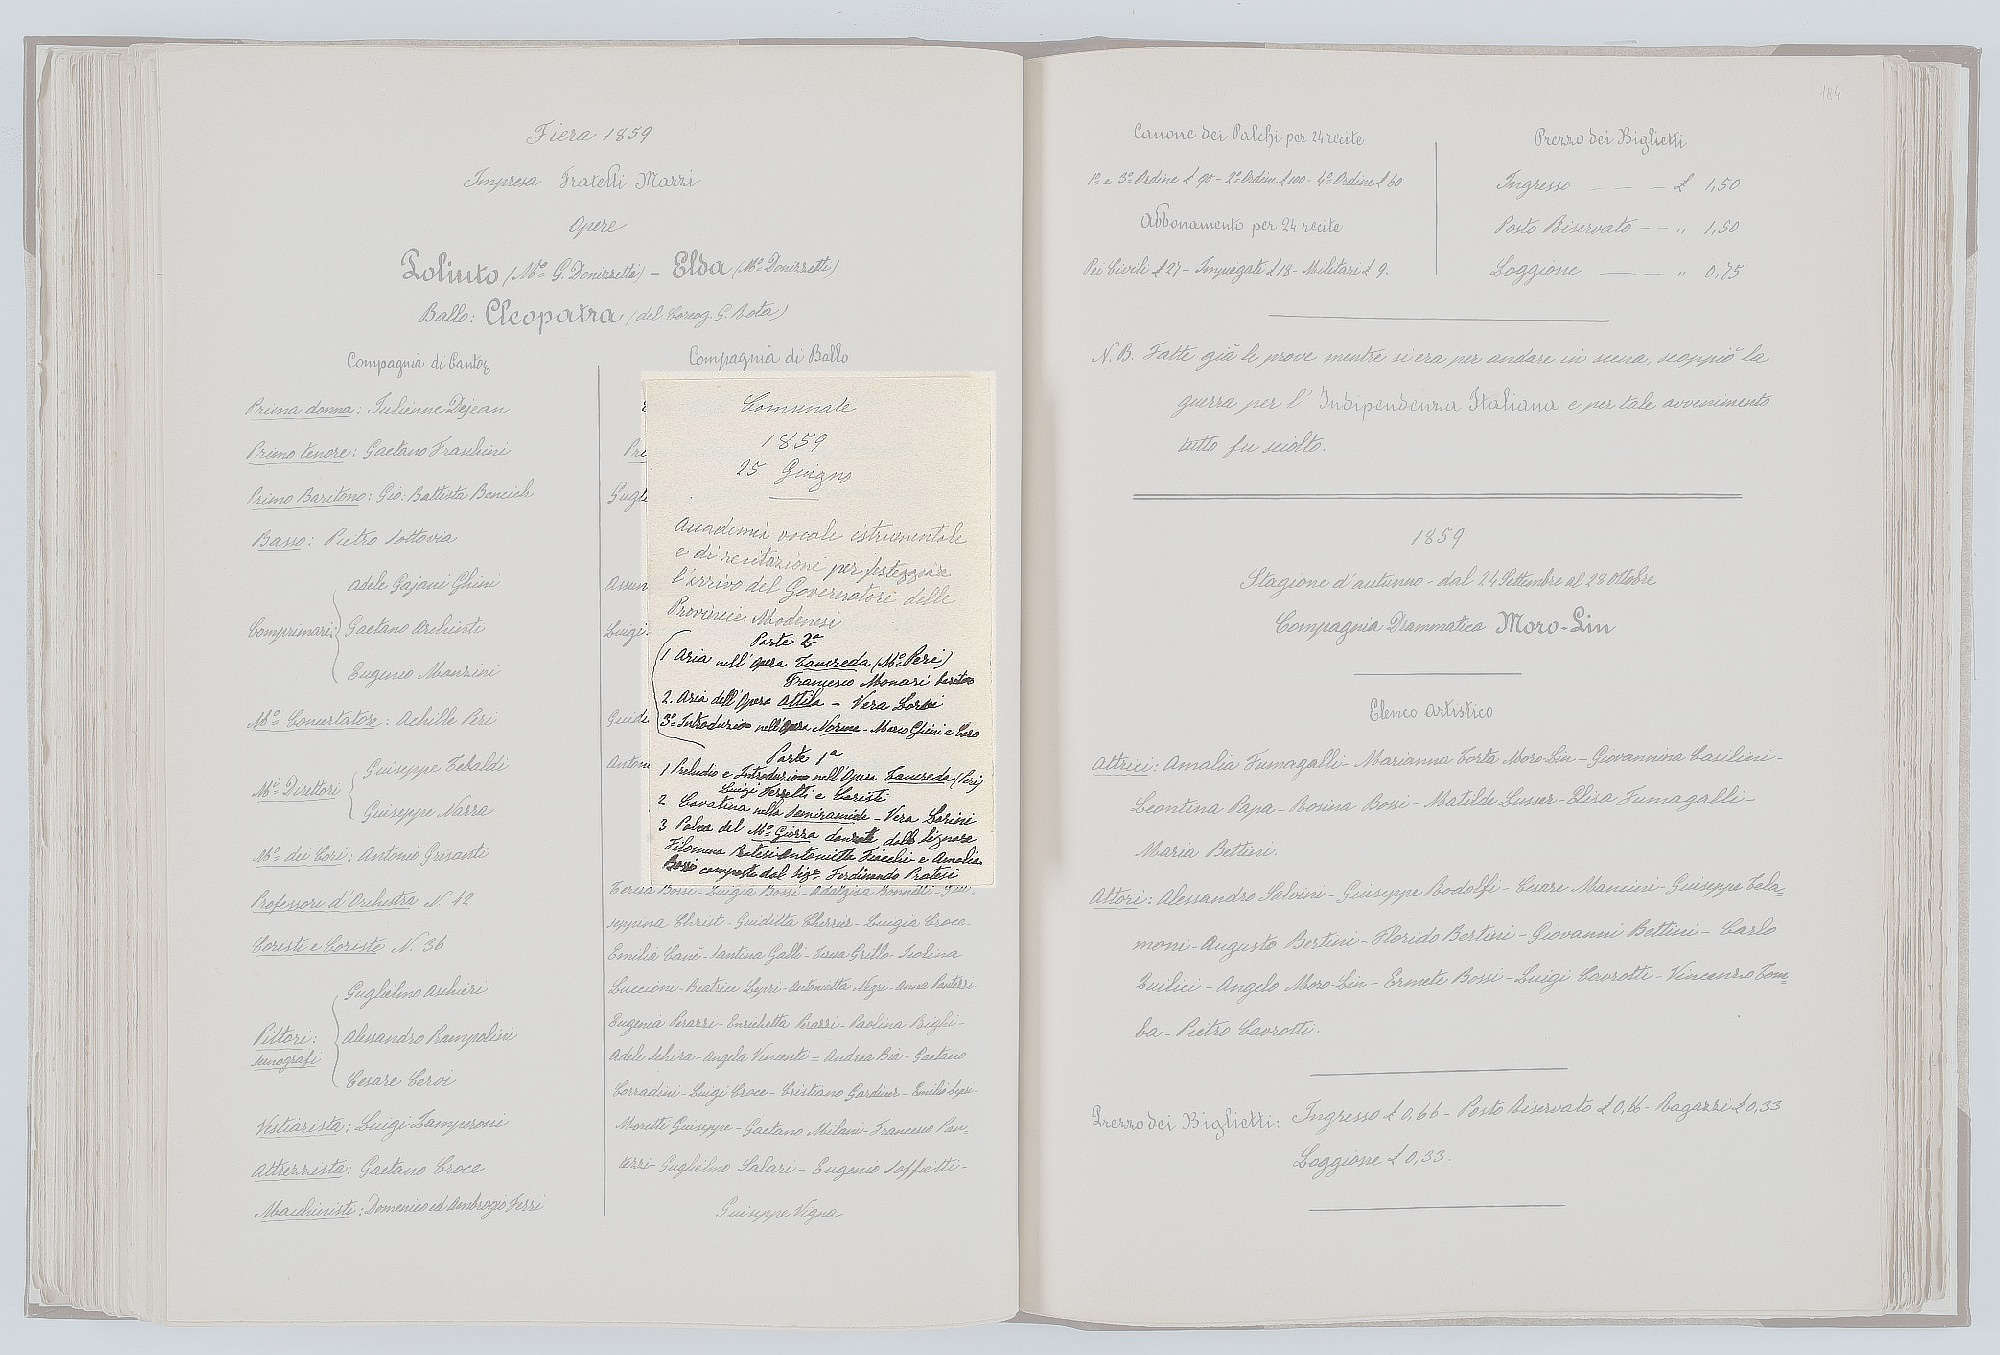 Fiera 1859
Impresa Fratelli Marzi
Opere
Poliuto (Mº G. Donizzetti) - Elda (Mº Donizzetti)
Ballo: Cleopatra (del Coreog. G. Rota)
Compagnia di Canto
Prima donna: Julienne Dejean
Primo tenore: Gaetano Fraschini
Primo Baritono: Gio. Battista Bencich
Basso: Pietro Sottovia
Adele Gajani Ghini
Comprimari: Gaetano Archinti
Eugenio Manzini
Mº Concertatore: Achille Peri
Giuseppe Tebaldi
Mi Direttori
Giuseppe Narra
Mº dei Cori: Antonio Grisanti
Professori d'Orchestra N. 42
Coristi e Coriste N. 36
Guglielmo Aschieri
Pittori: Alessandro Rampolini
scenografi
Cesare Ceroi
Vestiarista: Luigi Zamperoni
Attrezzista: Gaetano Croce
Macchinisti: Domenico ed Ambrogio Ferri
Compagnia di Ballo
Pri
Gugl
Assun
Luigi
Guid
Anton
Comunale
1859
25 Giugno
Accademia vocale istrumentale
e di recitazioni per festeggiare
l'arrivo del Governatore delle
Provincie Modenesi
Parte 2ª
1 Aria nell'opera Tancreda (Mº Peri)
Francesco Monari baritono
2. Aria dell'Opera Attila - Vera Lorini
3º Introduzione nell'Opera Norma - Marco Ghini e Coro
Parte 1ª
1 Preludio e Introduzione nell'Opera Tancreda (Peri)
Luigi Ferretti e Coristi
2 Cavatina nella Semiramide - Vera Lorini
3 Polca del Mº Giorza danzata dalle signore
Filomena Pratesi Antonietta Fiacchi e Amalia
Bossi composto dal Sigr. Ferdinando Pratesi
Teresa Bossi - Luigia Bossi - Adalgisa Bonnati - Giu-
seppina Christ - Guiditta Cherrier - Luigia Croce -
Emilia Canè - Santina Galli - Teresa Grillo - Isolina
Luccioni - Beatrice Lepri - Antonietta Negri - Anna Panterri
Eugenia Perazzi - Enrichetta Perazzi - Paolina Righi -
Adele Schira - Angela Vincenti = Andrea Bia - Gaetano
Corradini - Luigi Croce - Cristiano Gardiner - Emilio Lepri -
Moretti Giuseppe - Gaetano Milani - Francesco Pan-
izzi - Guglielmo Salari - Eugenio Soffietti -
Giuseppe Vigna
184
Canone dei Palchi per 24 recite
1º e 3º Ordine £ 90 - 2º Ordine £ 100 - 4º Ordine £ 60
Abbonamento per 24 recite
Pei Civili £ 27 - Impiegati £ 18 - Militari £ 9.
Prezzo dei Biglietti
Ingresso - - - £ 1,50
Posto Riservato - - „ 1,50
Loggione - - „ 0,75
N.B. Fatte già le prove mentre si era per andare in scena, scoppiò la
guerra per l'Indipendenza Italiana e per tale avvenimento
tutto fu sciolto.
1859
Stagione d'autunno - dal 24 Settembre al 28 Ottobre
Compagnia Drammatica Moro-Lin
Elenco Artistico
Attrici: Amalia Fumagalli - Marianna Torta Moro-Lin - Giovannina Casilini -
Leontina Papa - Rosina Bossi - Matilde Susser - Elisa Fumagalli -
Maria Bettini.
Attori: Alessandro Salvini - Giuseppe Rodolfi - Cesare Mancini - Giuseppe Tela-
moni - Augusto Bertini - Florido Bertini - Giovanni Bettini - Carlo
Duilici - Angelo Moro-Lin - Ermete Bossi - Luigi Cavrotti - Vincenzo Tom-
ba - Pietro Cavrotti.
Prezzo dei Biglietti: Ingresso £ 0,66 - Posto Riservato £ 0,66 - Ragazzi £ 0,33
Loggione £ 0,33.